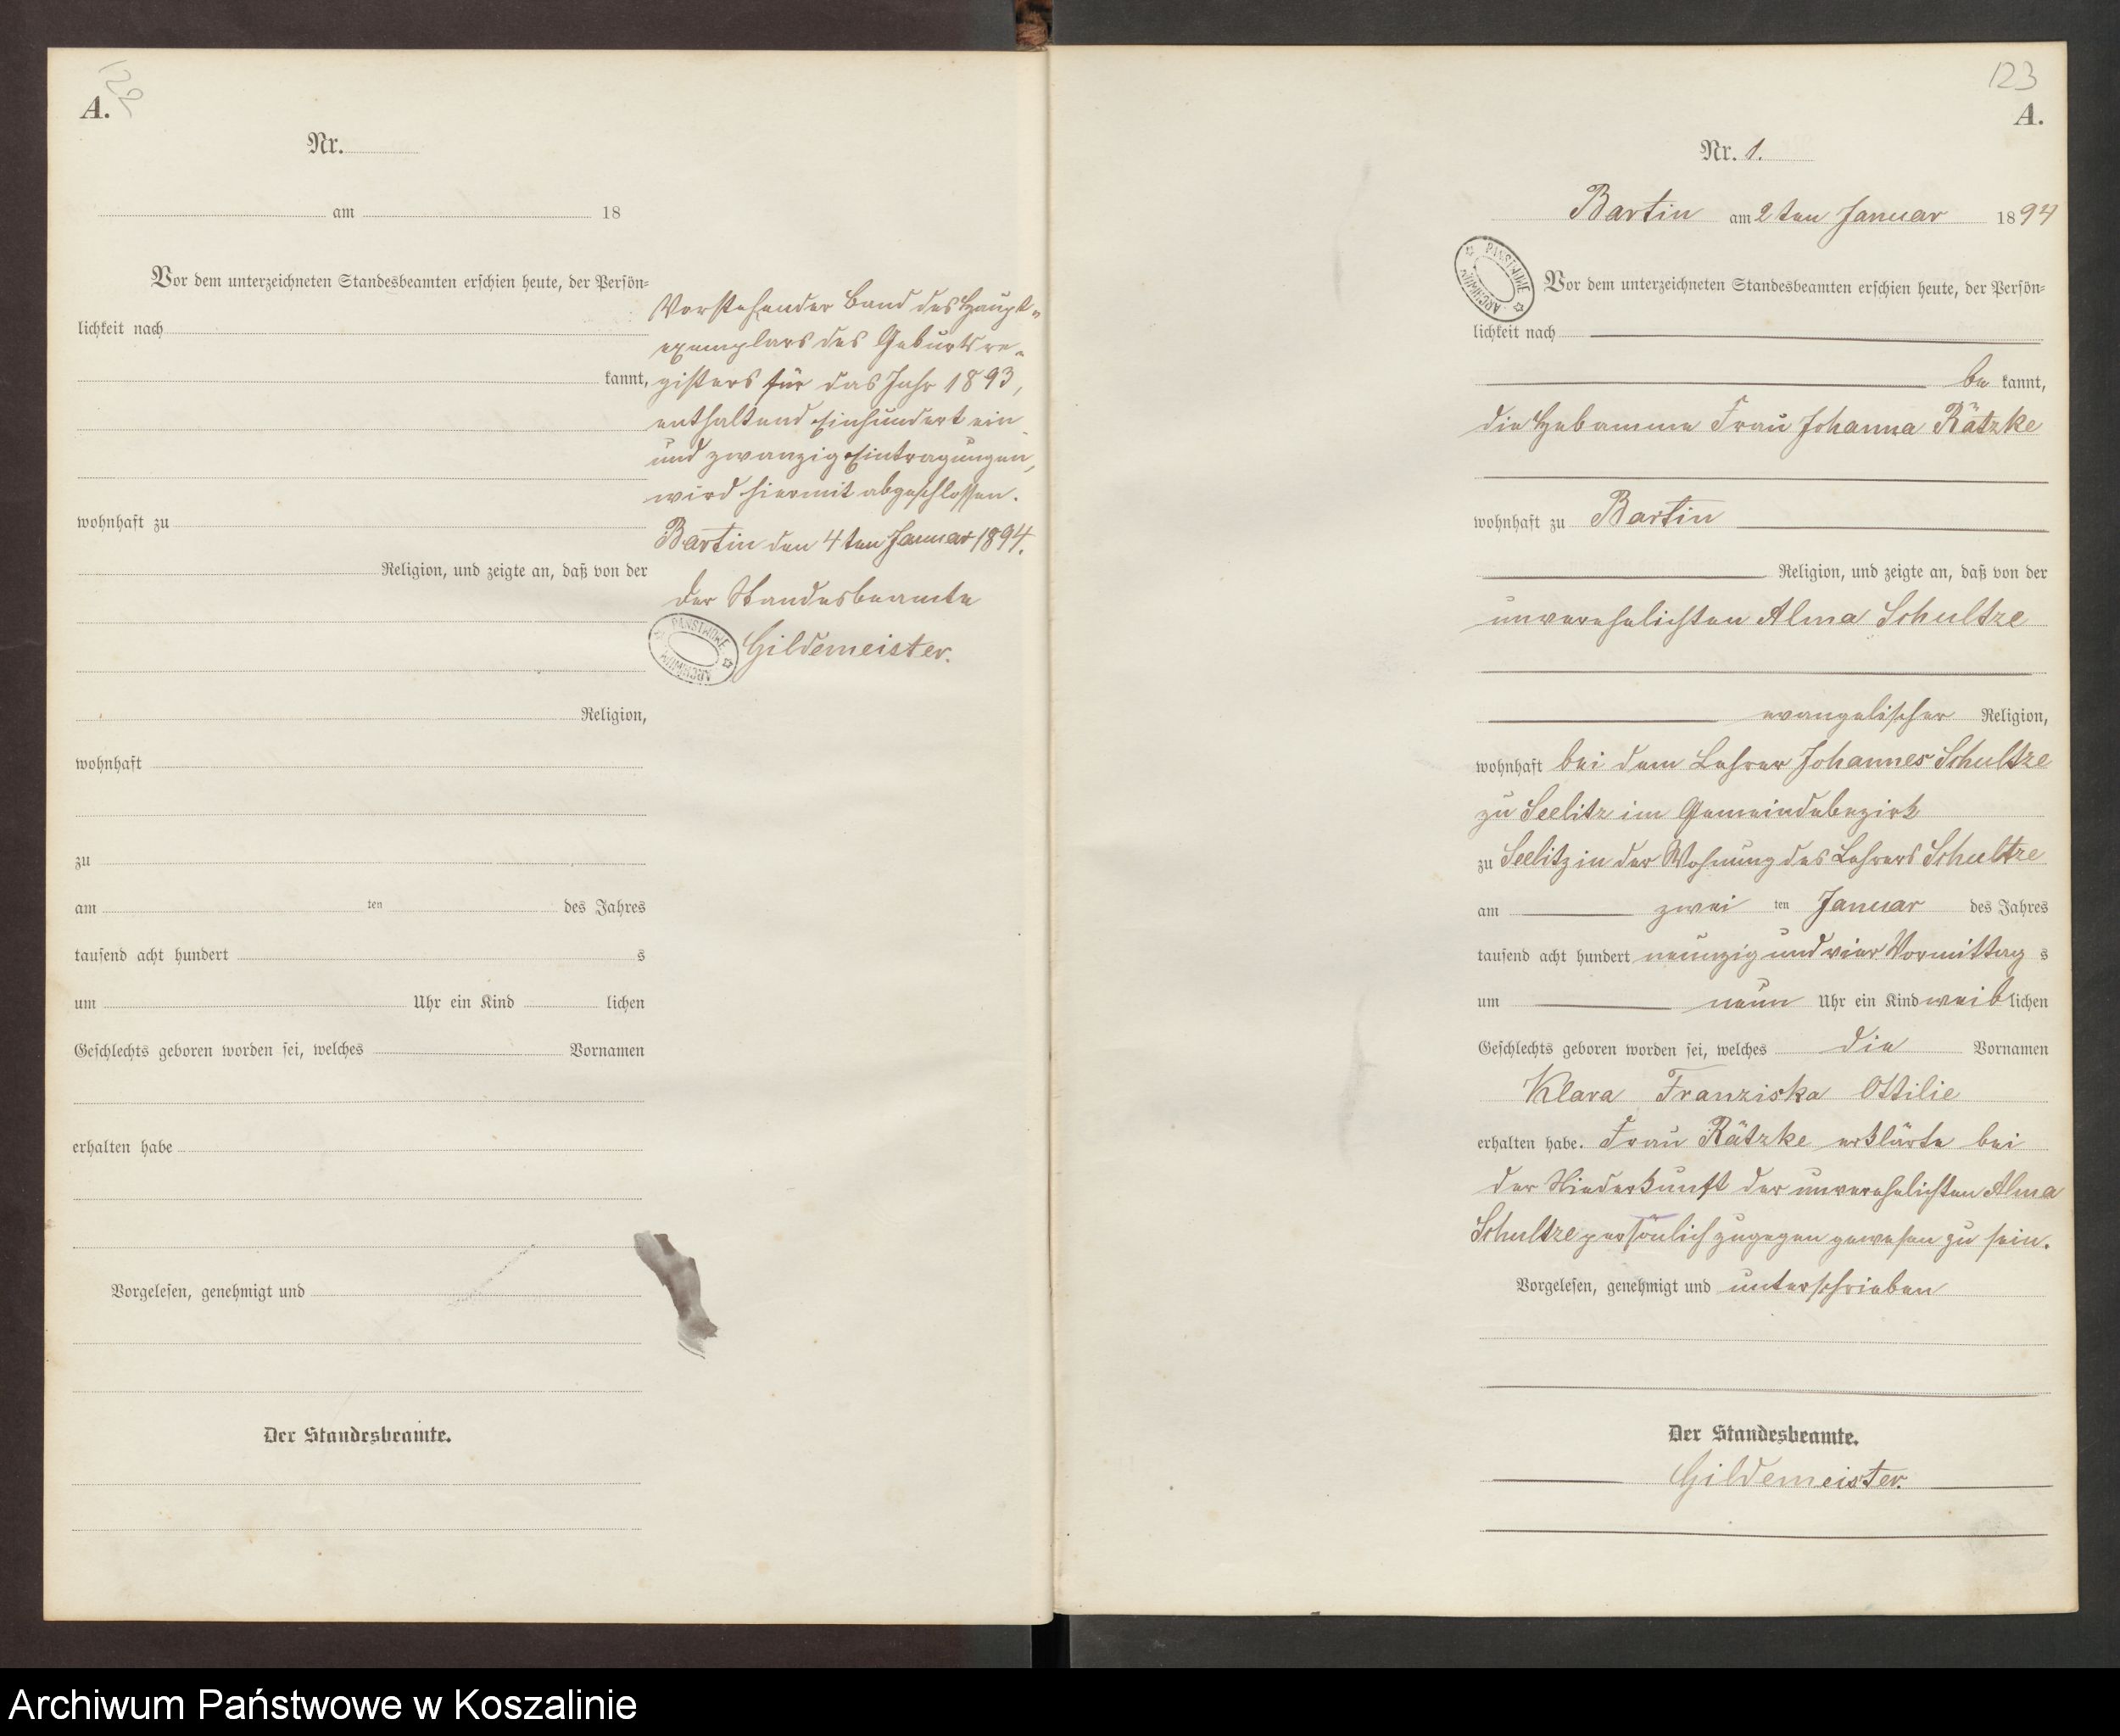 122
A.
Nr.
am 18
Vor dem unterzeichneten Standesbeamten erschien heute, der Persön=
lichkeit nach
kannt,
wohnhaft zu
Religion, und zeigte an, daß von der
Religion,
wohnhaft
zu
am ten des Jahres
tausend acht hundert s
um Uhr ein Kind lichen
Geschlechts geboren worden sei, welches Vornamen
erhalten habe
Vorgelesen, genehmigt und
Der Standesbeamte.
Vorstehender Band des Haupt=
exemplars des Geburtsre=
gisters für das Jahr 1893,
enthaltend Einhundert ein
und zwanzig Eintragungen,
wird hiermit abgeschlossen.
Bartin den 4ten Januar 1894.
Der Standesbeamte
Gildemeister.
PAŃSTWOWE ARCHIWUM
123
A.
Nr. 1.
Bartin am 2ten Januar 1894
PAŃSTWOWE ARCHIWUM
Vor dem unterzeichneten Standesbeamten erschien heute, der Persön=
lichkeit nach
be kannt,
die Hebamme Frau Johanna Rätzke
wohnhaft zu Bartin
Religion, und zeigte an, daß von der
unverehelichten Alma Schultze
evangelischer Religion,
wohnhaft bei dem Lehrer Johannes Schultze
zu Seelitz im Gemeindebezirk
zu Seelitz in der Wohnung des Lehrers Schultze
am zwei ten Januar des Jahres
tausend acht hundert neunzig und vier Vormittag s
um neun Uhr ein Kind weib lichen
Geschlechts geboren worden sei, welches die Vornamen
Klara Franziska Ottilie
erhalten habe. Frau Rätzke erklärte bei
der Niederkunft der unverehelichten Alma
Schultze persönlich zugegen gewesen zu sein.
Vorgelesen, genehmigt und unterschrieben
Der Standesbeamte.
Gildemeister.
Archiwum Państwowe w Koszalinie